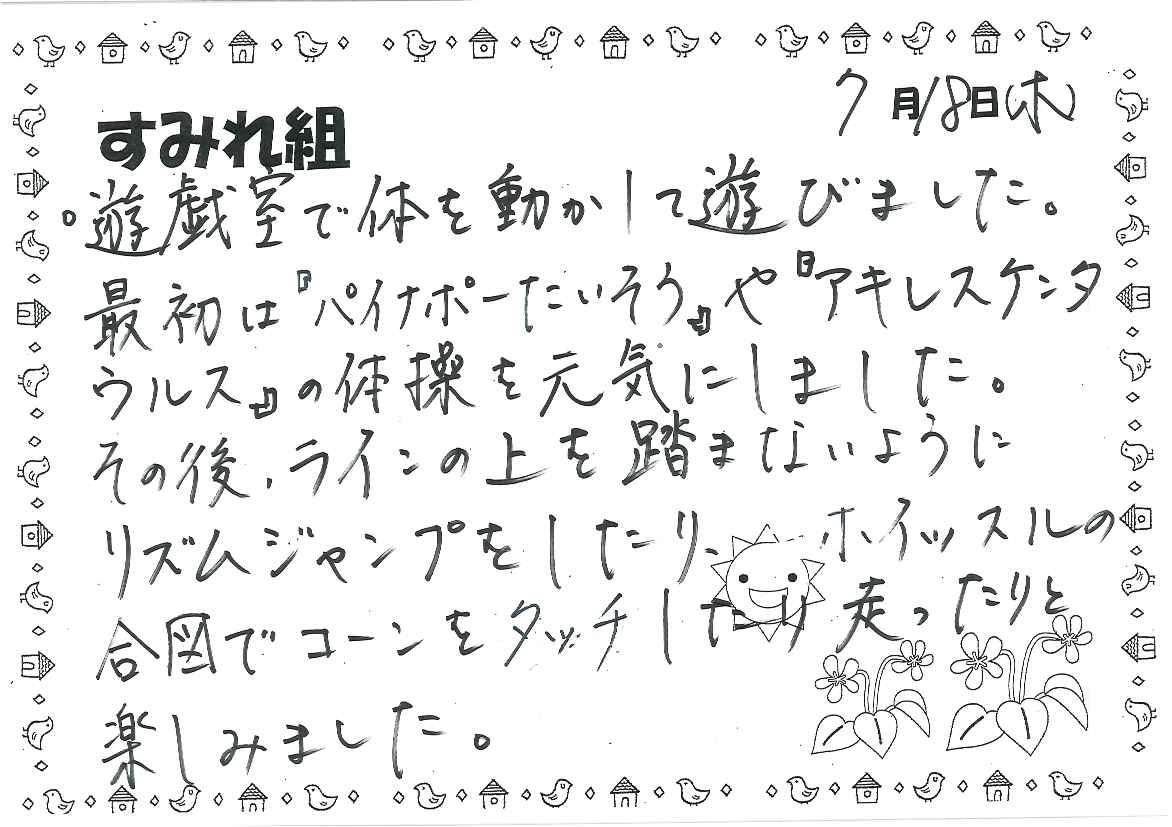 7月18日(木)
すみれ組
。遊戯室で体を動かして遊びました。
最初は『パイナポーたいそう』や『アキレスケンタ
ウルス』の体操を元気にしました。
その後、ラインの上を踏まないように
リズムジャンプをしたり、ホイッスルの
合図でコーンをタッチしたり走ったりと
楽しみました。